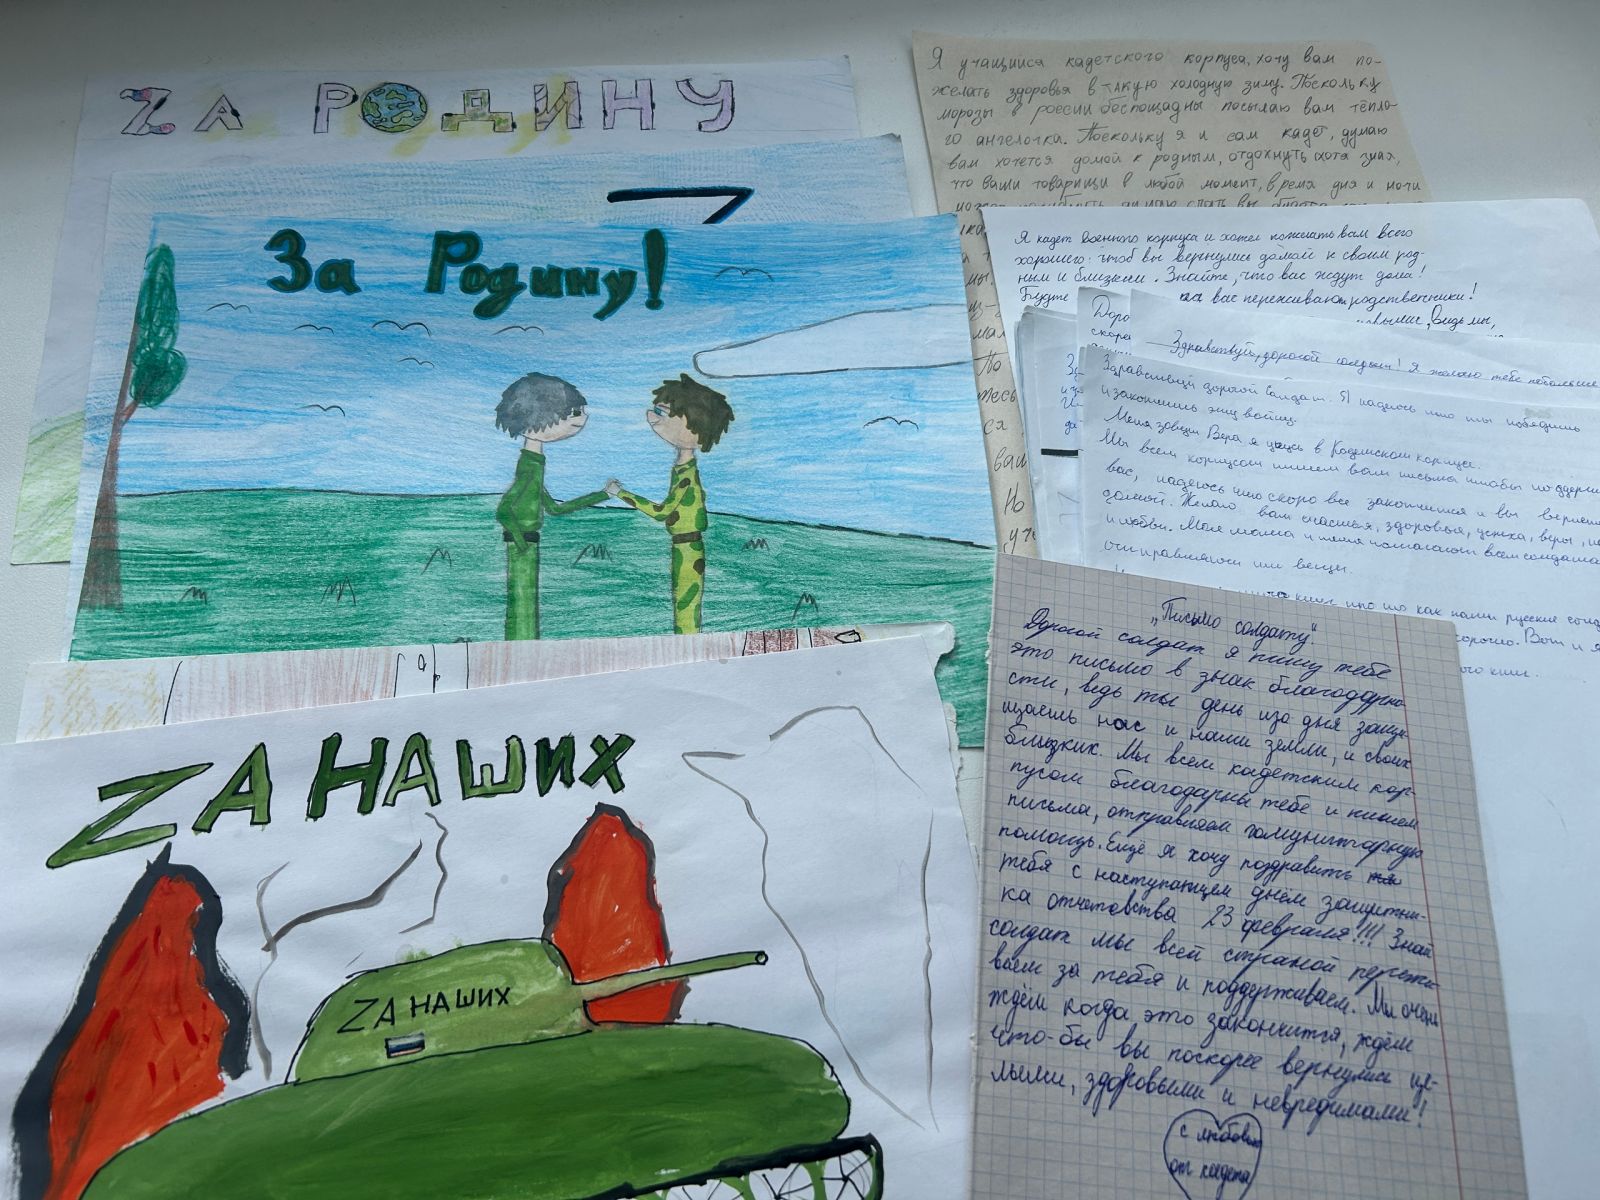 ZА РОДИНУ
За Родину!
ZА НАШИХ
ZА НАШИХ
Я учащийся кадетского корпуса, хочу вам по-
желать здоровья в такую холодную зиму. Поскольку
морозы в россии беспощадны посылаю вам тёпло-
го ангелочка. Поскольку я и сам кадет, думаю
вам хочется домой к родным, отдохнуть хотя зная,
что ваши товарищи в любой момент, время дня и ночи
Я кадет военного корпуса и хотел пожелать вам всего
хорошего: чтоб вы вернулись домой к своим род-
ным и близким. Знайте, что вас ждут дома!
Будьте
за вас переживают родственники!
Ведь мы,
Доро
скоро
Здравствуй, дорогой солдат! Я желаю тебе побольше
Здравствуй дорогой Солдат. Я надеюсь что ты победишь
и закончишь эту войну.
Меня зовут Вера я учусь в Кадетском корпусе.
Мы всем корпусом пишем вам письма чтобы поддержи
вас, надеюсь что скоро все закончится и вы вернете
домой. Желаю вам счастья, здоровья, успеха, веры,
и любви. Моя мама и тётя помогают всем солдата
отправляют им вещи.
про то как наши русские солд
хорошо. Вот и я
„Письмо солдату“
Дорогой солдат я пишу тебе
это письмо в знак благодарно
сти, ведь ты день изо дня защи-
щаешь нас и наши земли, и своих
близких. Мы всем кадетским кор-
пусом благодарны тебе и пишем
письма, отправляем гомунитарную
помощь. Ещё я хочу поздравить
тебя с наступающем днём защитни-
ка отчетовства 23 февраля!!! Знай
солдат мы всей страной пережи-
ваем за тебя и поддерживаем. Мы очень
ждём когда это закончится, ждём
что-бы вы поскорее вернулись це-
лыми, здоровыми и невредимами!
с любовью
от кадета